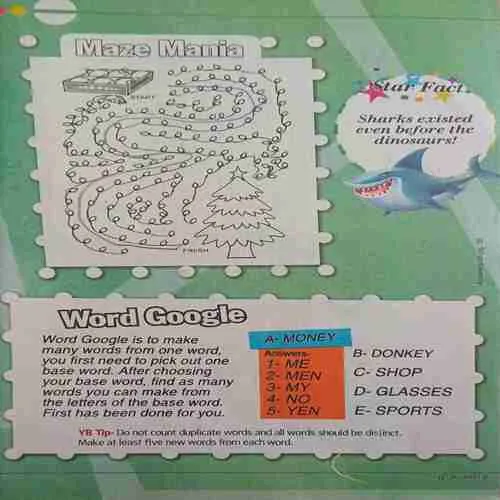 Maze Mania
START
FINISH
Star Fact
Sharks existed
even before the
dinosaurs!
Word Google
Word Google is to make
many words from one word,
you first need to pick out one
base word. After choosing
your base word, find as many
words you can make from
the letters of the base word.
First has been done for you.
A- MONEY
Answers-
1- ME
2- MEN
3- MY
4- NO
5- YEN
B- DONKEY
C- SHOP
D- GLASSES
E- SPORTS
YB Tip- Do not count duplicate words and all words should be distinct.
Make at least five new words from each word.